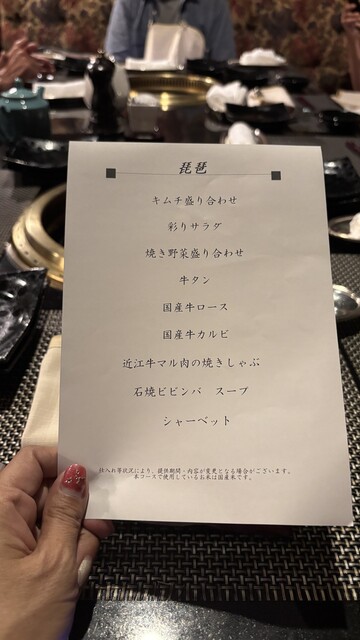 琵琶
キムチ盛り合わせ
彩りサラダ
焼き野菜盛り合わせ
牛タン
国産牛ロース
国産牛カルビ
近江牛マル肉の焼きしゃぶ
石焼ビビンバ　スープ
シャーベット
仕入れ等状況により、提供期間・内容が変更となる場合がございます。
本コースで使用しているお米は国産米です。